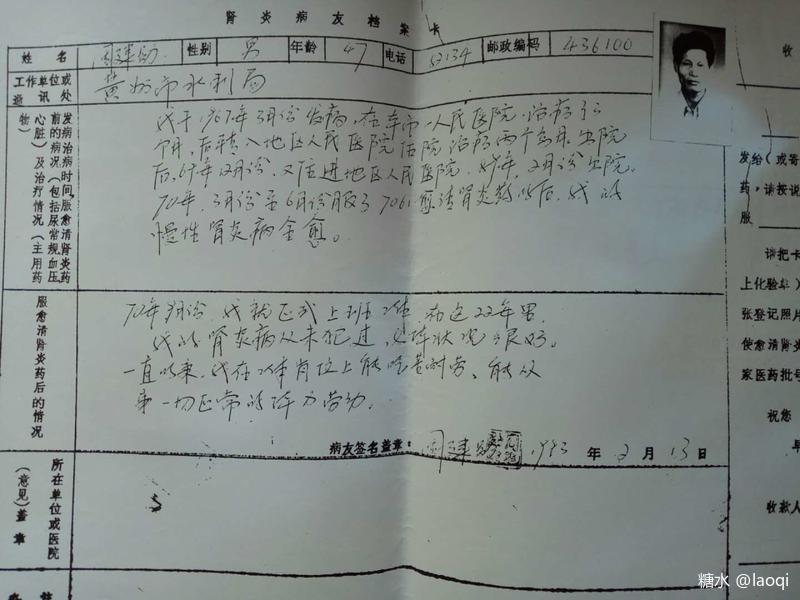 肾炎病友档案卡
姓名 周建勋 性别 男 年龄 47 电话 52134 邮政编码 436100
工作单位或通讯处 黄州市水利局
发病治病时间，服愈清肾炎药前的病况（包括尿常规血压心脏）及治疗情况（主用药物）
我于1967年3月份发病，在本市一人民医院治病
个月，后转入地区人民医院住院治病两个多月出院
后，67年12月份，又住进地区人民医院，68年2月份出院。
70年，3月份至6月份服了7061愈清肾炎药以后，我的
慢性肾炎病全愈。
服愈清肾炎药后的情况
70年 月份，我就正式上班工作，在这22年里，
我的肾炎病从未犯过，身体状况很好。
一直以来，我在工作岗位上能吃苦耐劳，能从
事一切正常的体力劳动。
病友签名盖章： 周建勋 1993年2月13日
所在单位或医院（意见）盖章
收
发给（或寄
药，请按说
服
请把卡
上化验单）
张登记照片
使愈清肾炎
家医药批号
祝您
早
收款人
糖水 @laoqi